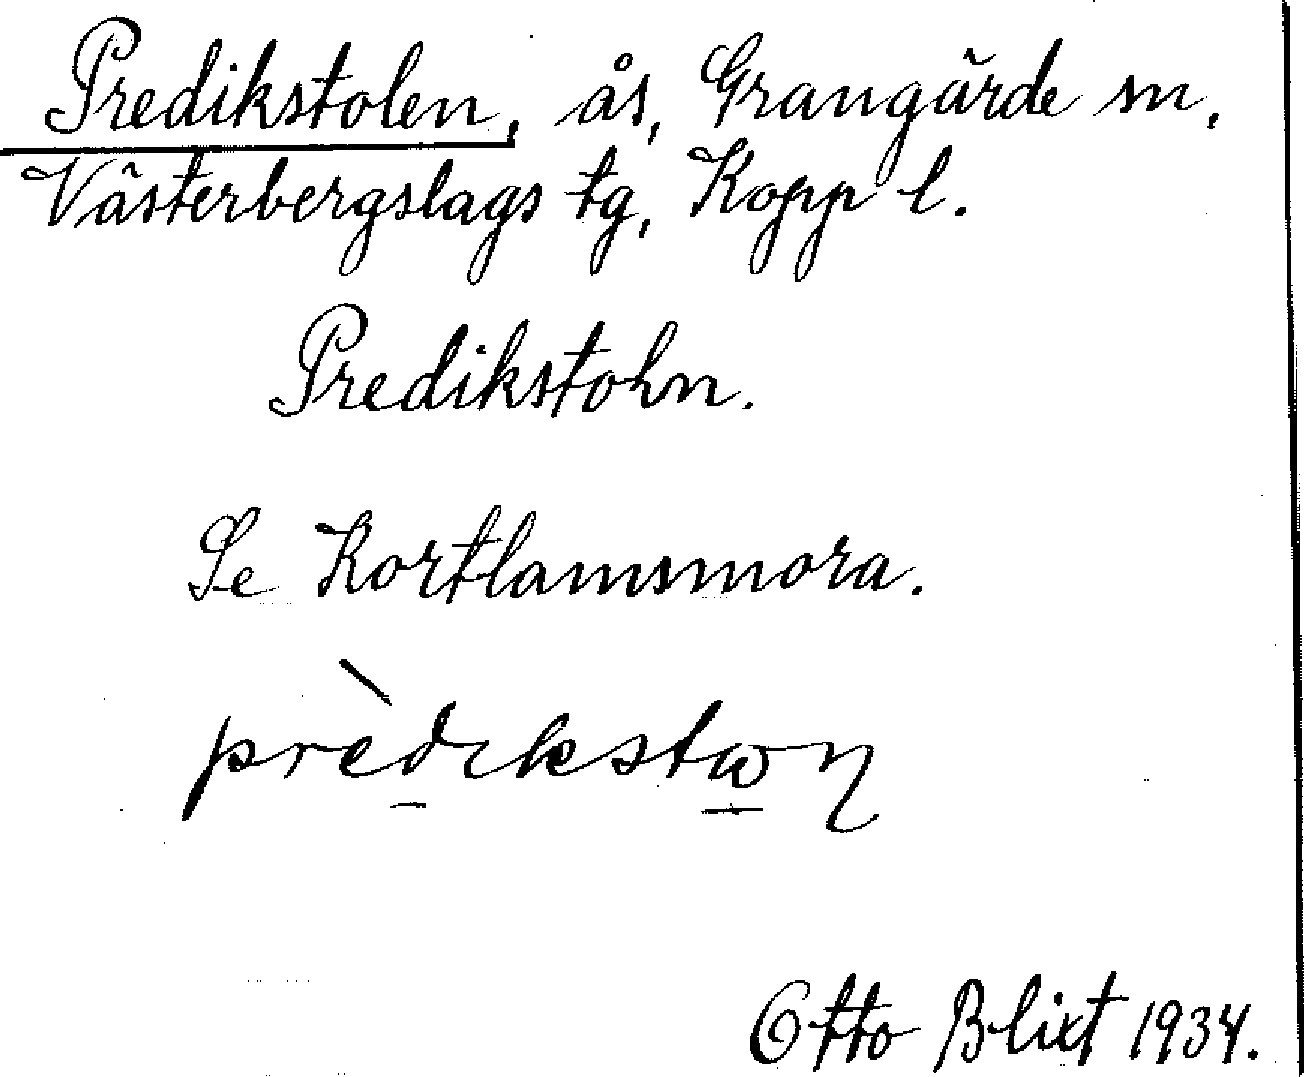 Predikstolen, ås, Grangärde sn,
Västerbergslags tg, Kopp l.
Predikstohn.
Se Kortlamsmora.
prèdɩkstɷn
Otto Blixt 1934.